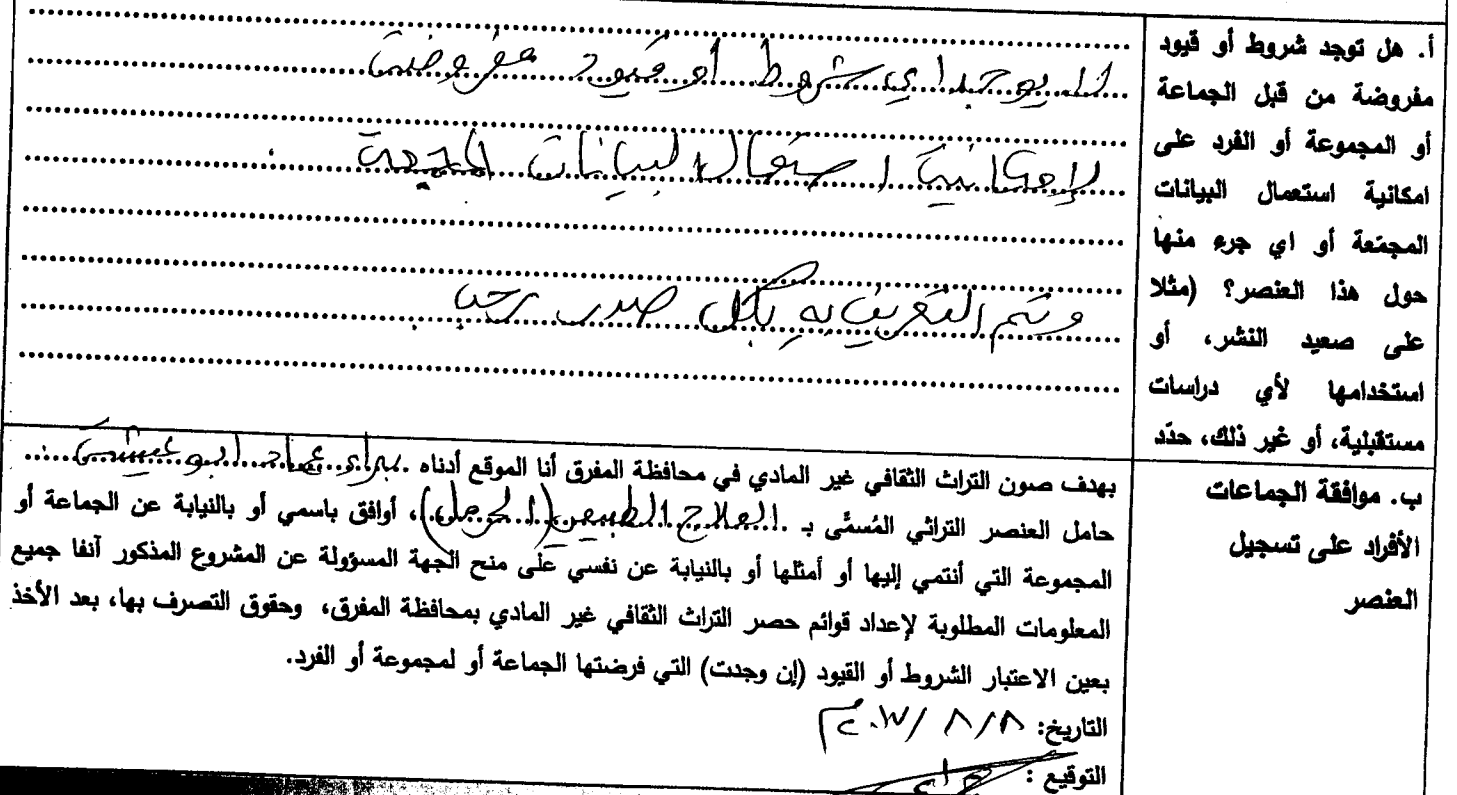 أ. هل توجد شروط أو قيود
مفروضة من قبل الجماعة
أو المجموعة أو الفرد على
امكانية استعمال البيانات
المجمّعة أو اي جرء منها
حول هذا العنصر؟ (مثلا
على صعيد النشر، أو
استخدامها لأي دراسات
مستقبلية، أو غير ذلك، حدّد
لا يوجد اي شروط او قيود مفروضة
لإمكانية استعمال البيانات المجمعة
وتم التعريف به بكل صدر رحب
ب. موافقة الجماعات
الأفراد على تسجيل
العنصر
بهدف صون التراث الثقافي غير المادي في محافظة المفرق أنا الموقع أدناه براء عماد ابو عيشة
حامل العنصر التراثي المُسمَّى بـ العلاج الطبيعي (الحرمل)، أوافق باسمي أو بالنيابة عن الجماعة أو
المجموعة التي أنتمي إليها أو أمثلها أو بالنيابة عن نفسي على منح الجهة المسؤولة عن المشروع المذكور آنفا جميع
المعلومات المطلوبة لإعداد قوائم حصر التراث الثقافي غير المادي بمحافظة المفرق، وحقوق التصرف بها، بعد الأخذ
بعين الاعتبار الشروط أو القيود (إن وجدت) التي فرضتها الجماعة أو لمجموعة أو الفرد.
التاريخ: ٨/٨/ ٢٠١٧م
التوقيع :